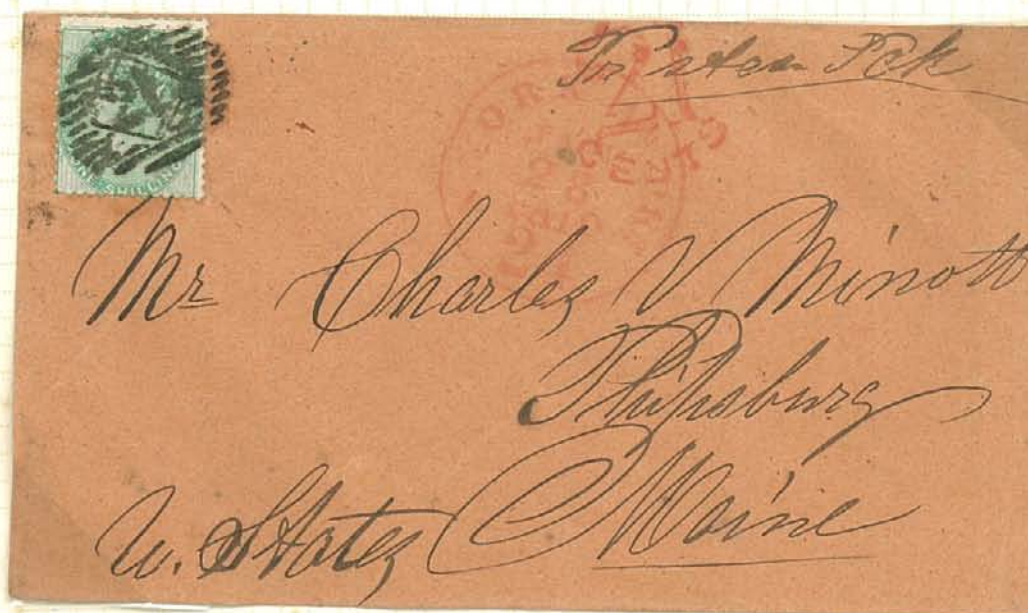 Pr steam Pck
ONE SHILLING
Mr Charles V Minott
Phipsburg
Maine
U. States